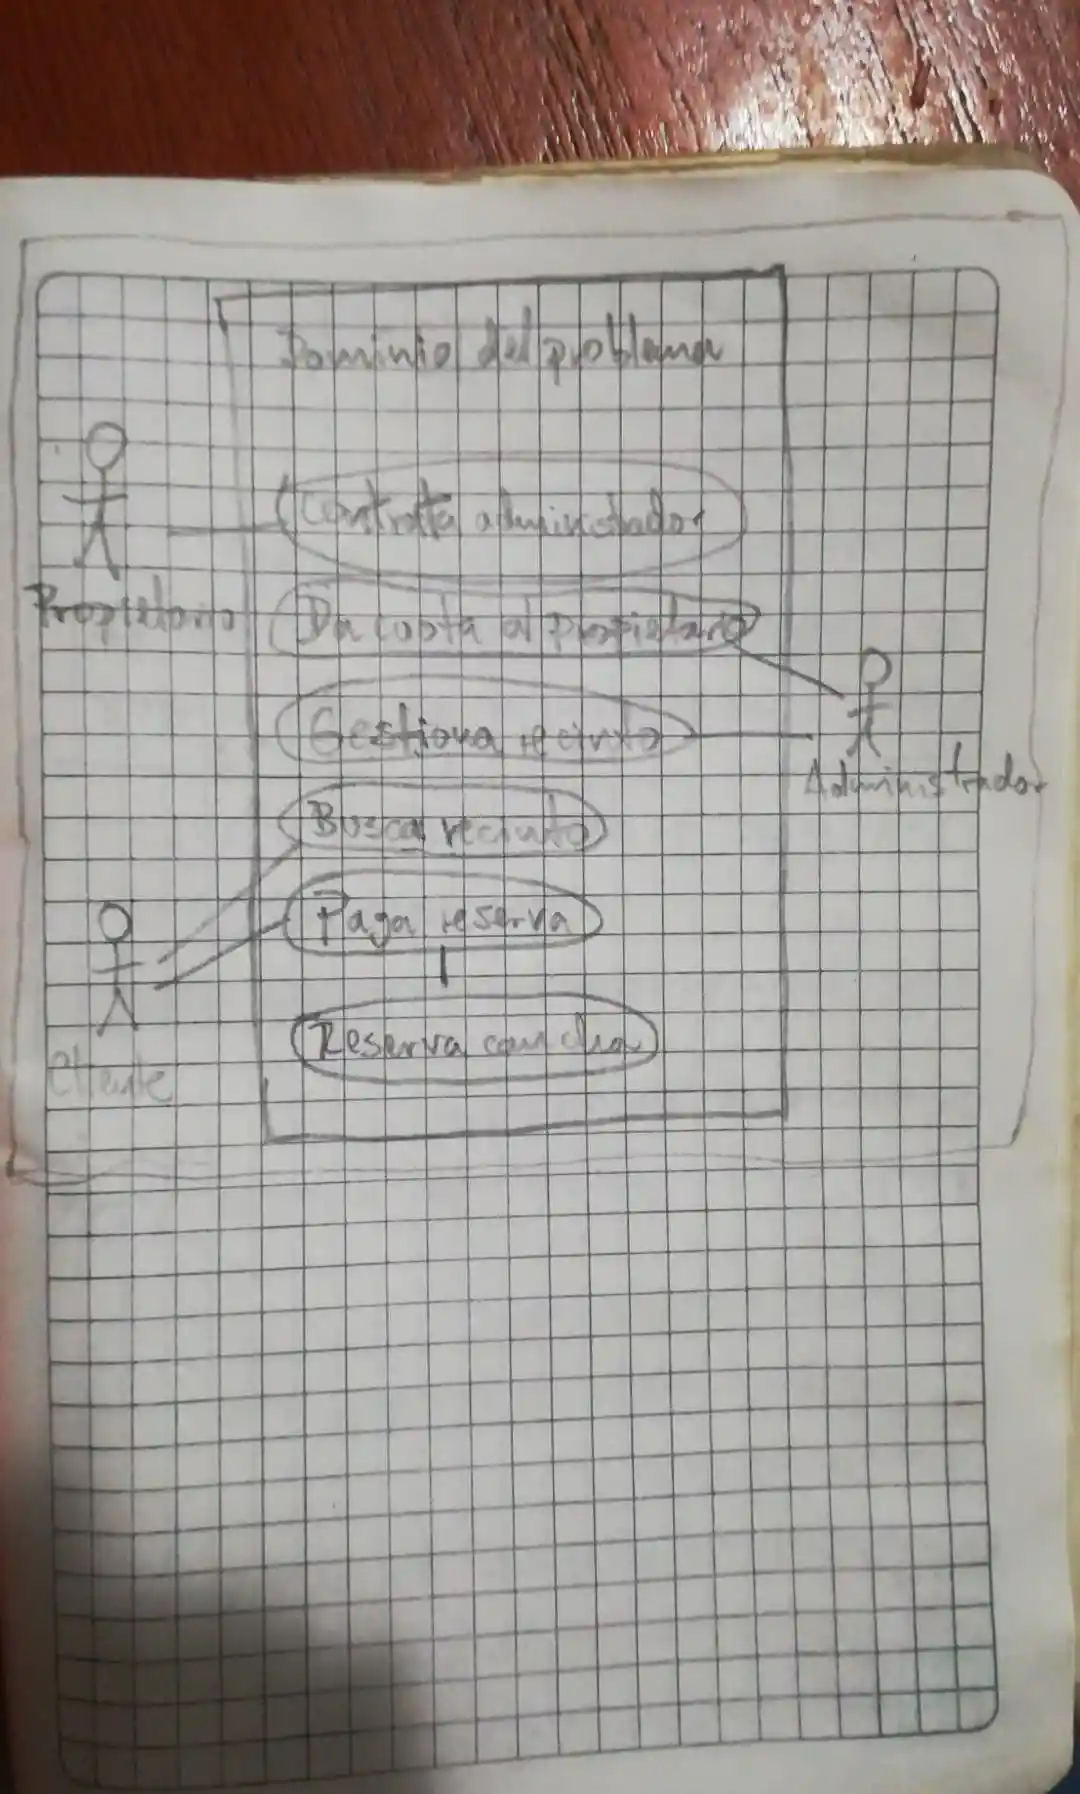 Dominio del problema
Contrata administrador
Propietario
Da cuota al propietario
Gestiona recinto
Administrador
Busca recinto
Paga reserva
Reserva cancha
Cliente